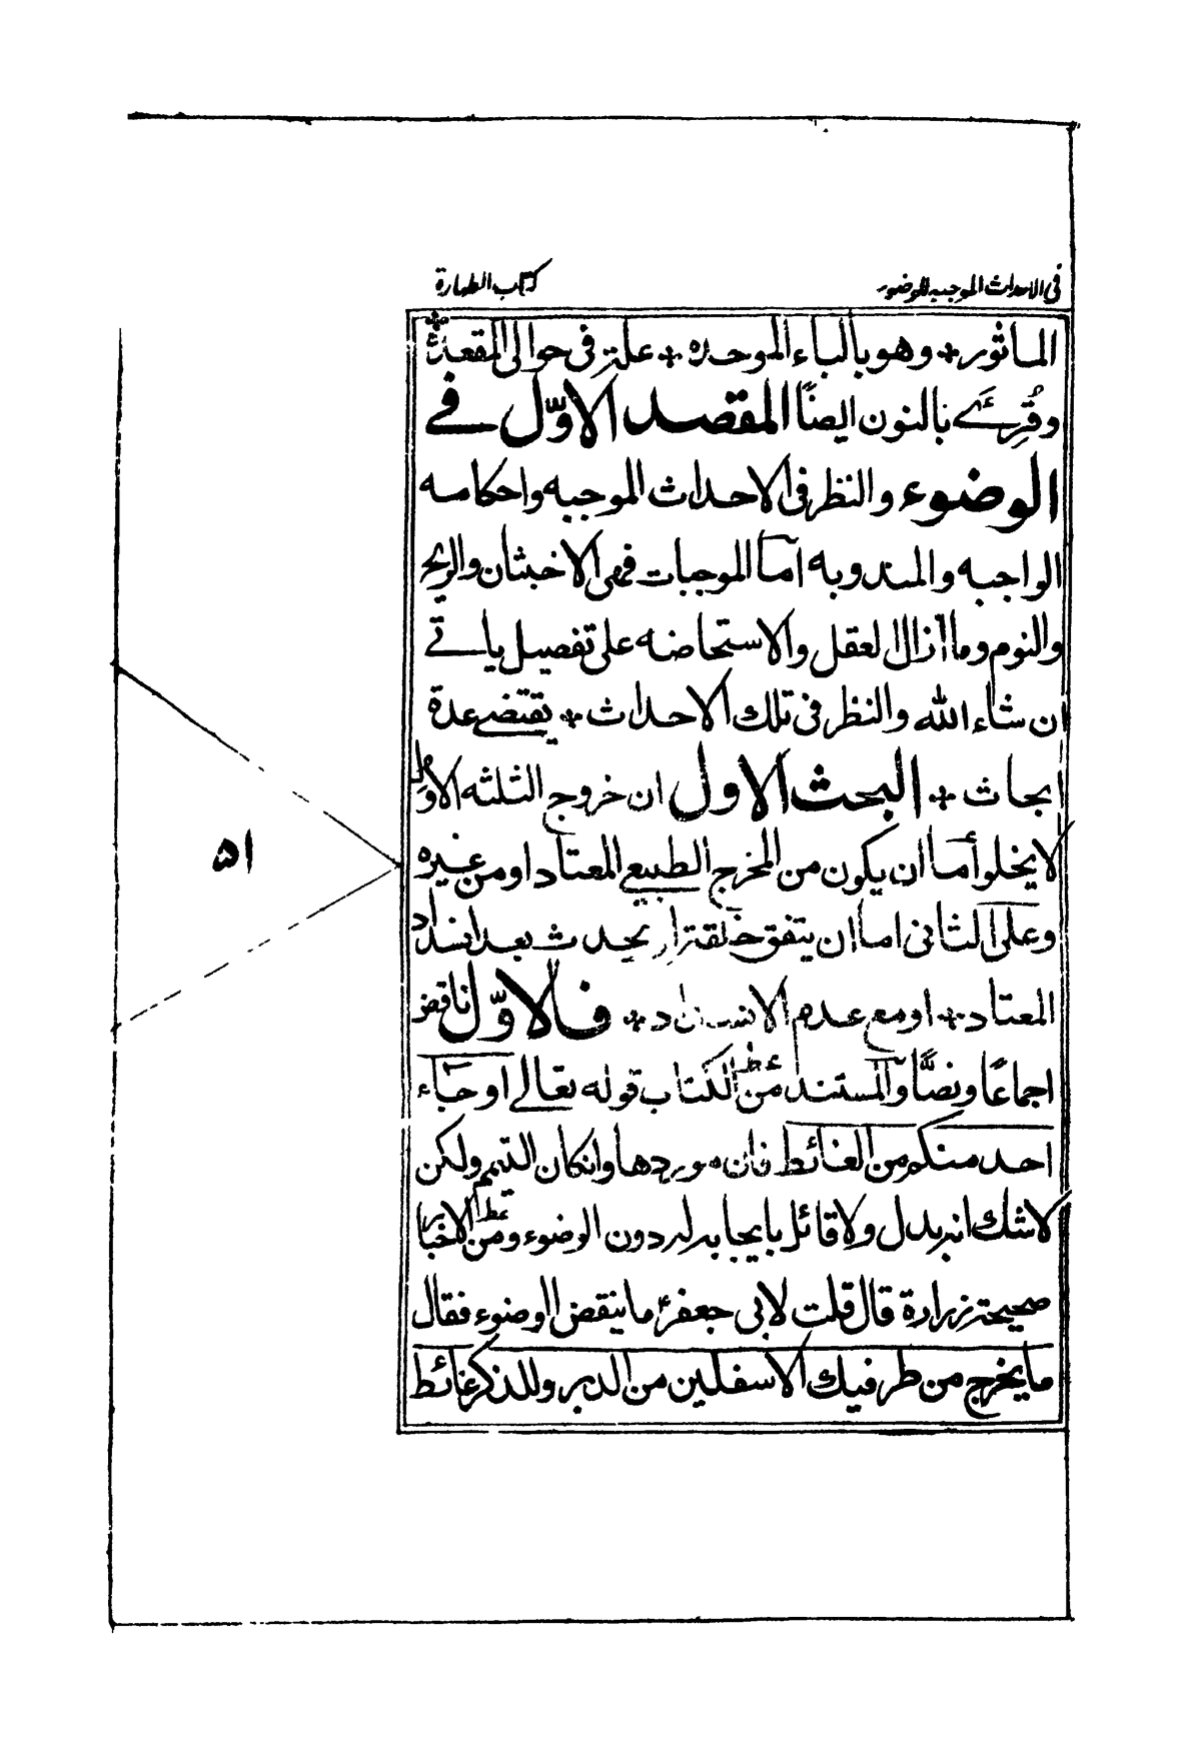 في الاحداث الموجبه للوضوء
كتاب الطهارة
الماثور + وهو بالباء الموحده + علة في حوالى المقعدة
وقُرِئَ بالنون ايضًا المقصد الاوّل في
الوضوء والنظر في الاحداث الموجبه واحكامه
الواجبه والمندوبه امّا الموجبات فهى الاخبثان والريح
والنوم وما ازال العقل والاستحاضه على تفصيل ياتے
ان شاء الله والنظر في تلك الاحداث + يقتضے عدة
ابحاث + البحث الاول ان خروج الثلثه الاول
لا يخلو أما ان يكون من المخرج الطبيعي المعتاد او من غيره
وعلى الثانى اما ان يتفق خلقة او يحدث بعد انسداد
المعتاد + او مع عدم الانسداد + فالاوّل ناقض
اجماعًا ونصًّا والمستند من الكتاب قوله تعالے او جَاء
احد منكم من الغائط فان موردها وان كان التيمم ولكن
لا شك انه بدل ولا قائل بايجابه له دون الوضوء ومن الاخبار
صحيحة زرارة قال قلت لابى جعفرؑ ما ينقض الوضوء فقال
ما يخرج من طرفيك الاسفلين من الدبر وللذكر غائط
۵۱